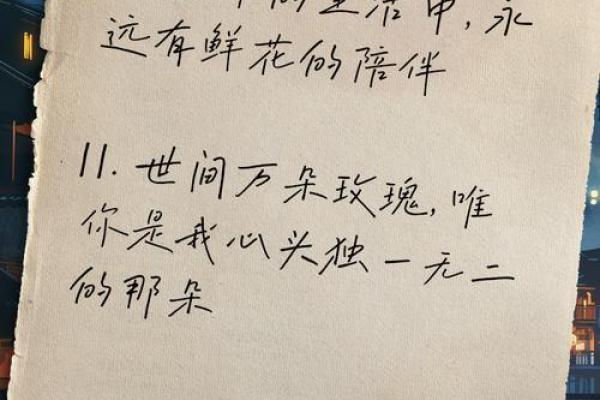 的生活中,永
远有鲜花的陪伴
11.世间万朵玫瑰,唯
你是我心头独一无二
的那朵